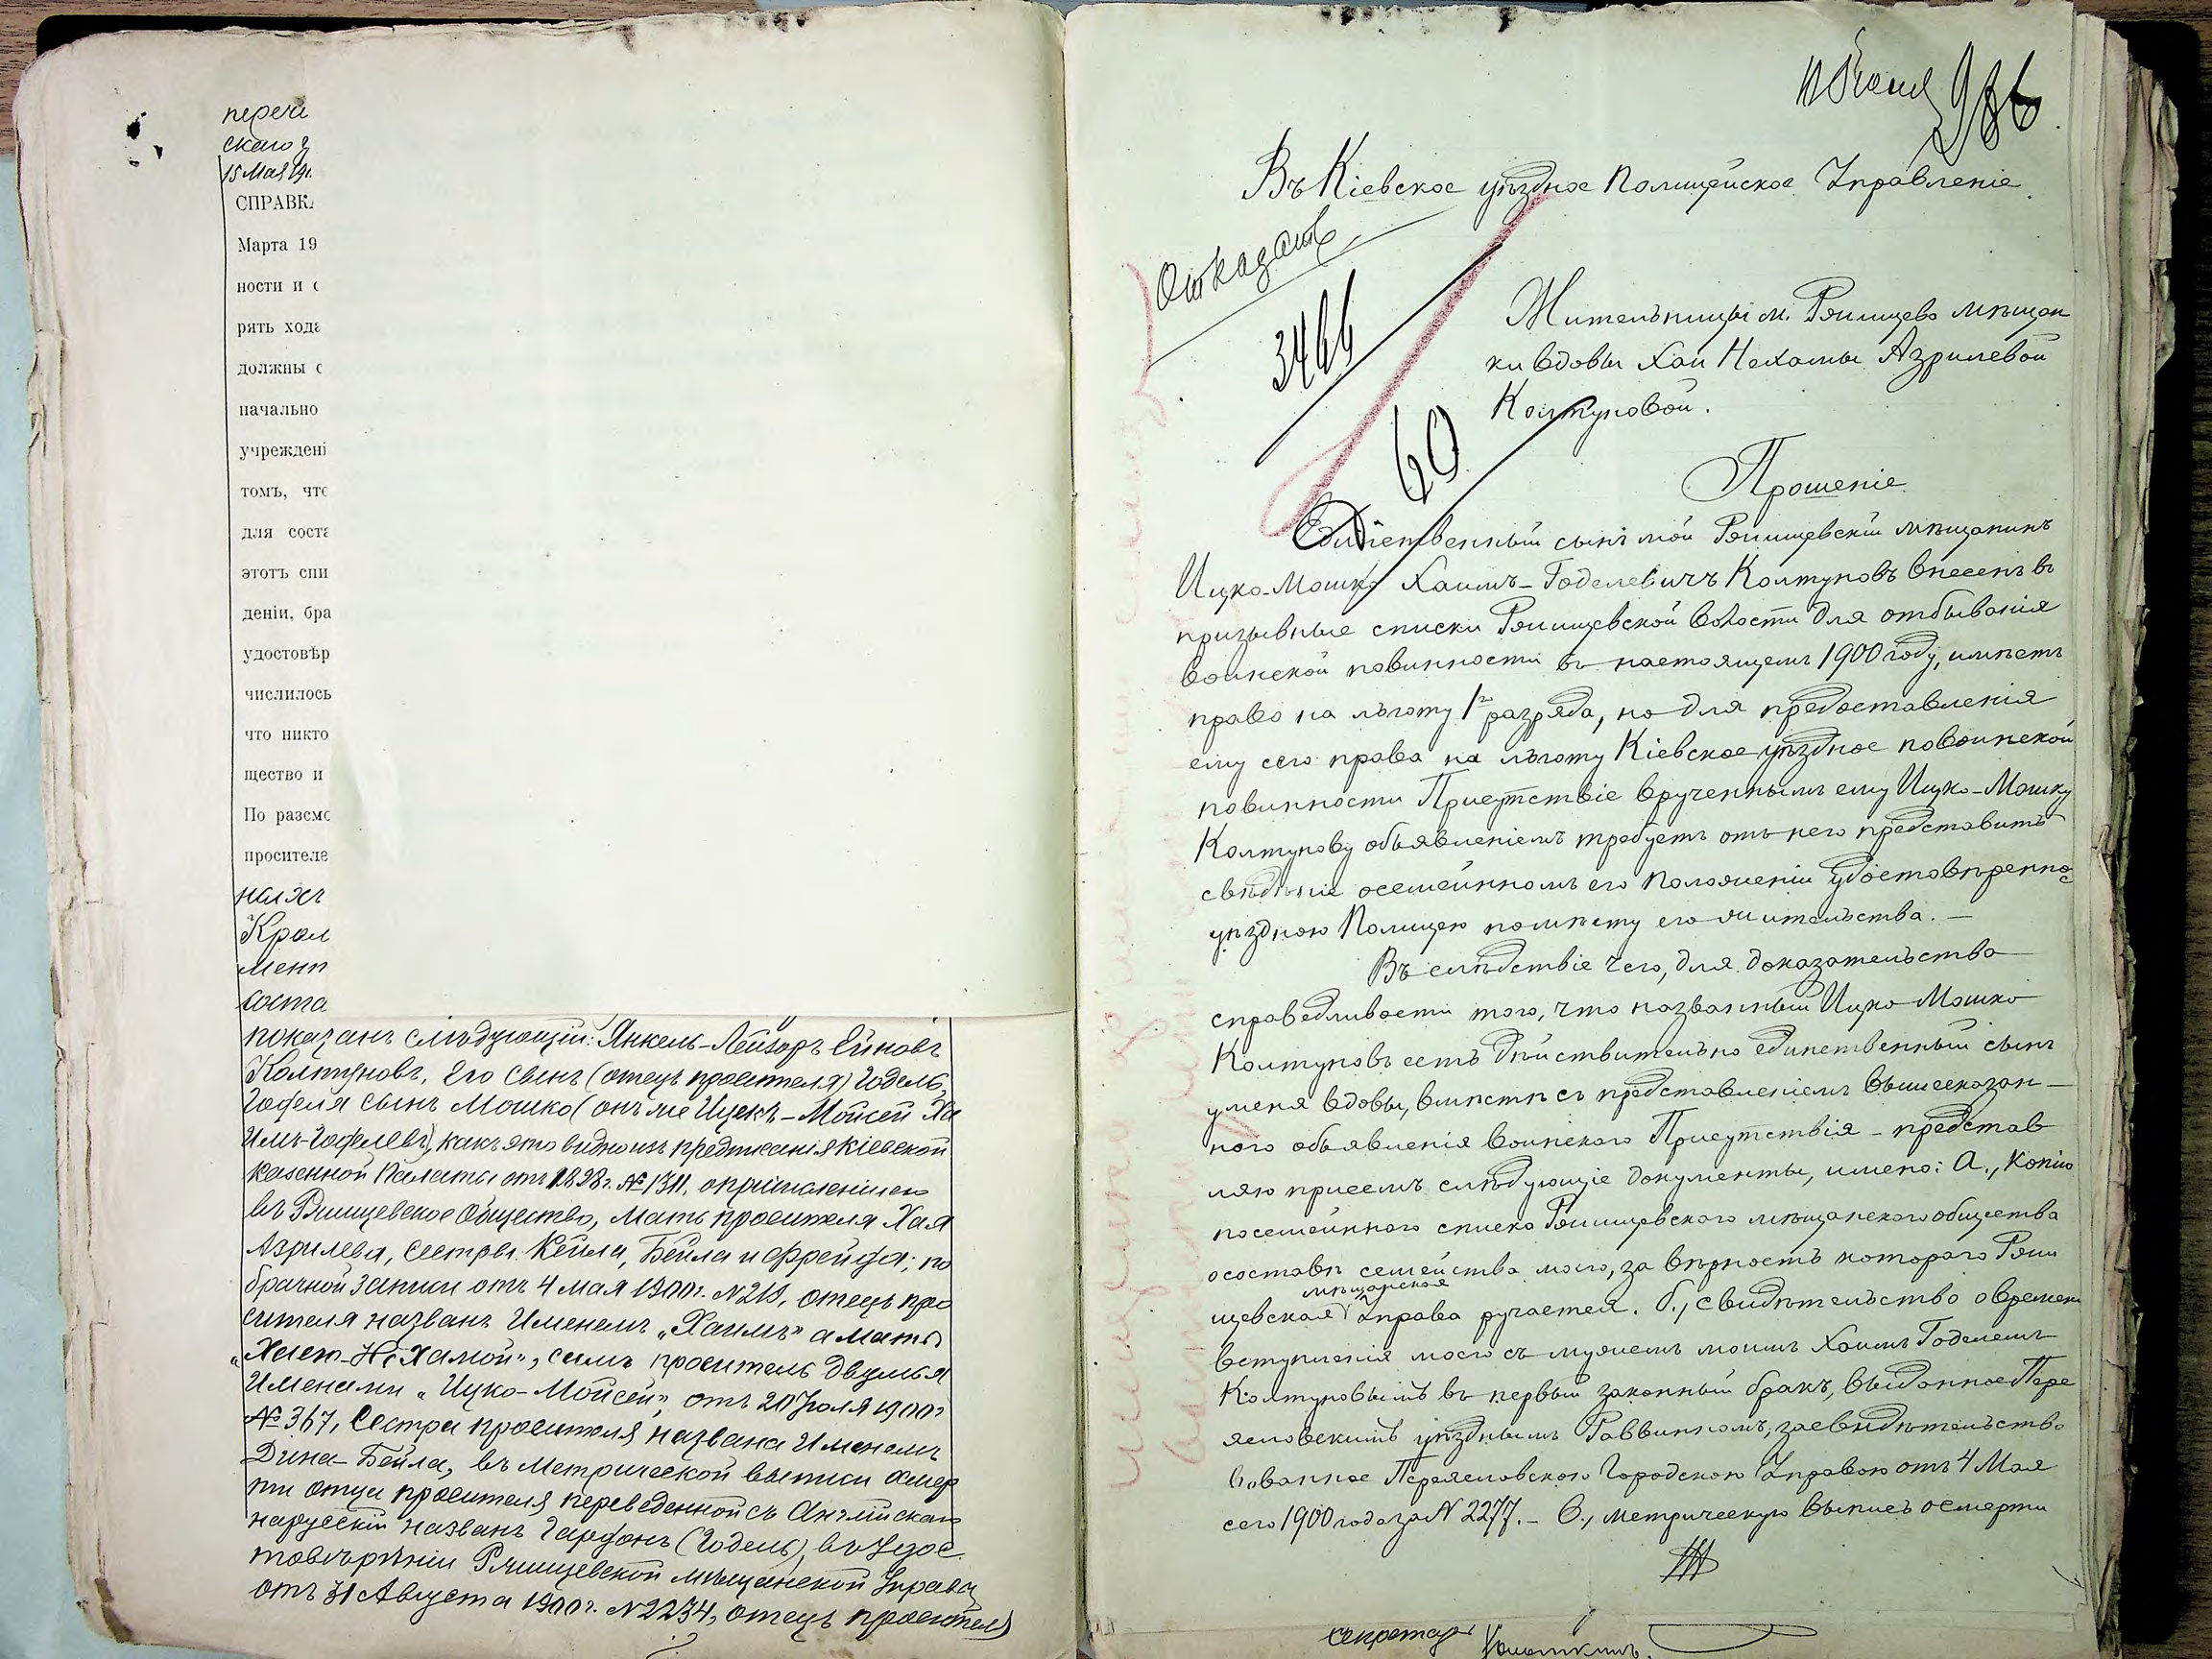 перечи
скаго у
15 Мая 191
СПРАВКА
Марта 19
ности и с
рять хода
должны с
начально
учрежденi
томъ, что
для соста
этотъ спи
денiи, бра
удостовѣр
числилось
что никто
щество и
По разсмо
просителе
Крал
мент
соста
показанъ слѣдующiй: Янкель-Лейзоръ Ейновъ
Колтуновъ, его сынъ (отецъ просителя) Годель,
Годеля сынъ Мошко (онъ же Ицекъ-Мойсей Ха
имъ-Годелевъ), какъ это видно изъ предписанiя Кiевской
Казенной Палаты отъ 1898 г. № 1311, о причисленiи его
въ Ржищевское Общество, мать просителя Хая
Азрилева, сестры: Кейла, Бейла и Фрейда; по
брачной записи отъ 4 мая 1900 г. № 218, отецъ про
сителя названъ Именемъ „Хаимъ" а мать
„Хаею-Нехамой", самъ проситель двумя
Именами „Ицко-Мойсей", отъ 20 Июля 1900 г
№ 367, Сестра просителя названа Именемъ
Дина-Бейла, въ Метрической выписи о смер
ти отца просителя переведенной съ Англiйскаго
на русскiй названъ Гардонъ (Годель), въ Удос
товѣренiи Ржищевской мѣщанской Управы
отъ 31 Августа 1900 г. № 2234, отецъ просителя
986
Въ Кiевское уѣздное Полицейское Управленiе
Отказать
3466
60
Жительницы м. Ржищева мѣщан
ки вдовы Хаи Нехамы Азрилевой
Колтуновой.
Прошенiе
Единственный сынъ мой Ржищевскiй мѣщанинъ
Ицко-Мошко Хаимъ-Годелевичъ Колтуновъ внесенъ въ
призывные списки Ржищевской волости для отбыванiя
воинской повинности въ настоящемъ 1900 году, имѣетъ
право на льготу 1го разряда, но для предоставленiя
ему сего права на льготу Кiевское уѣздное по воинской
повинности Присутствiе врученнымъ ему Ицко-Мошку
Колтунову объявленiемъ требуетъ отъ него представить
свѣдѣнiе о семейномъ его положенiи удостовѣренное
уѣздною Полицею по мѣсту его жительства. —
Въ слѣдствiе чего, для доказательства
справедливости того, что названный Ицко Мошко
Колтуновъ есть дѣйствительно единственный сынъ
у меня вдовы, вмѣстѣ съ представленiемъ вышесказан-
ного объявленiя Воинскаго Присутствiя - представ
ляю при семъ слѣдующiе документы, имено: А., Копiю
посемейнаго списка Ржищевского мѣщанского общества
о составѣ семейства моего, за вѣрность которого Ржи
щевская мѣщанская Управа ручается. б., Свидѣтельство о времени
вступленiя моего съ мужемъ моимъ Хаимъ Годелемъ
Колтуновымъ въ первый законный бракъ, выданное Пере
яславскимъ уѣзднымъ Раввиномъ, засвидѣтельство
ванное Переяславскою Городскою Управою отъ 4 Мая
сего 1900 года за N 2277. - В., метрическую выпись о смерти
секретарь